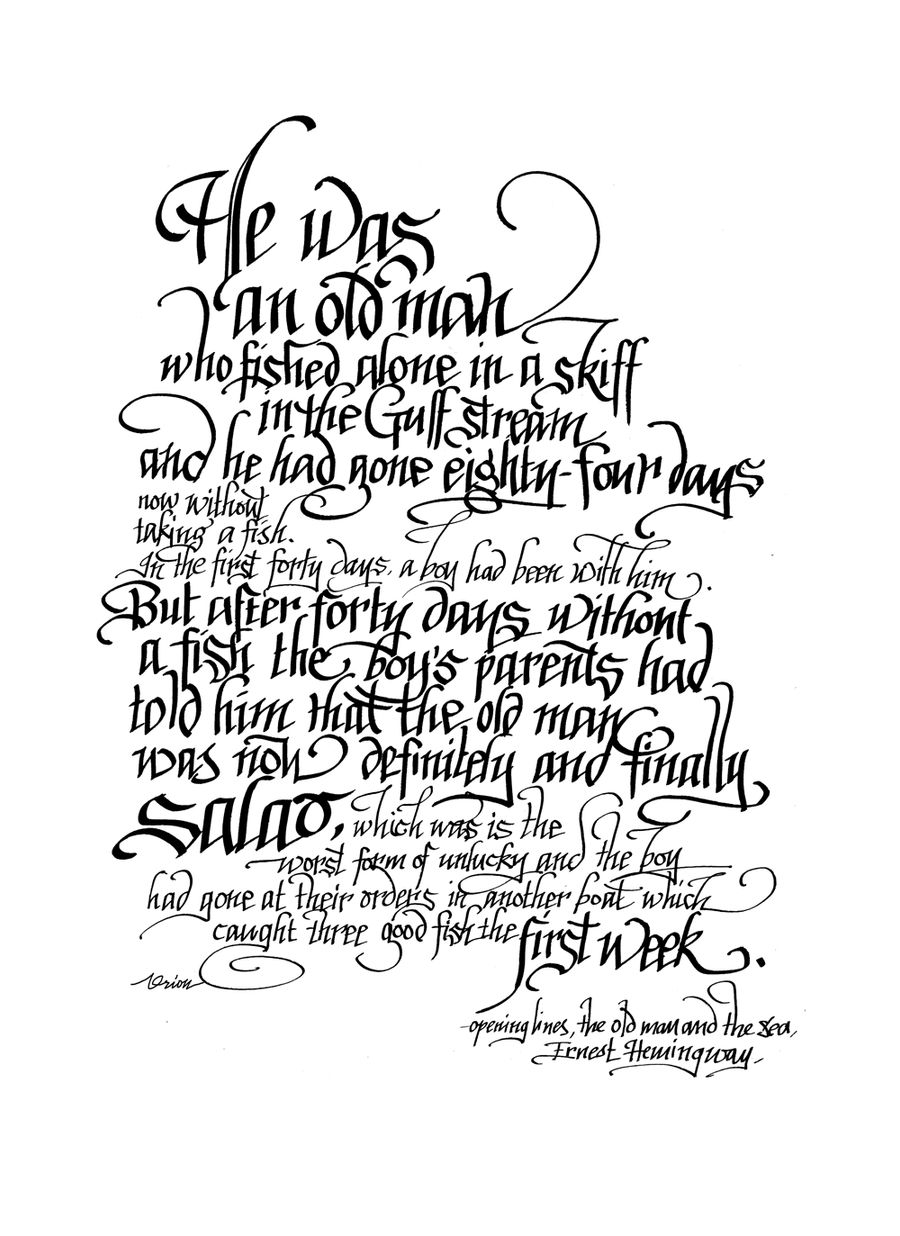 He was
an old man
who fished alone in a skiff
in the Gulf stream
and he had gone eighty-four days
now without
taking a fish.
In the first forty days, a boy had been with him.
But after forty days without
a fish the boy's parents had
told him that the old man
was now definitely and finally
salao, which was is the
worst form of unlucky and the boy
had gone at their orders in another boat which
caught three good fish the first week.
Orion
-opening lines, the old man and the sea,
Ernest Hemingway-